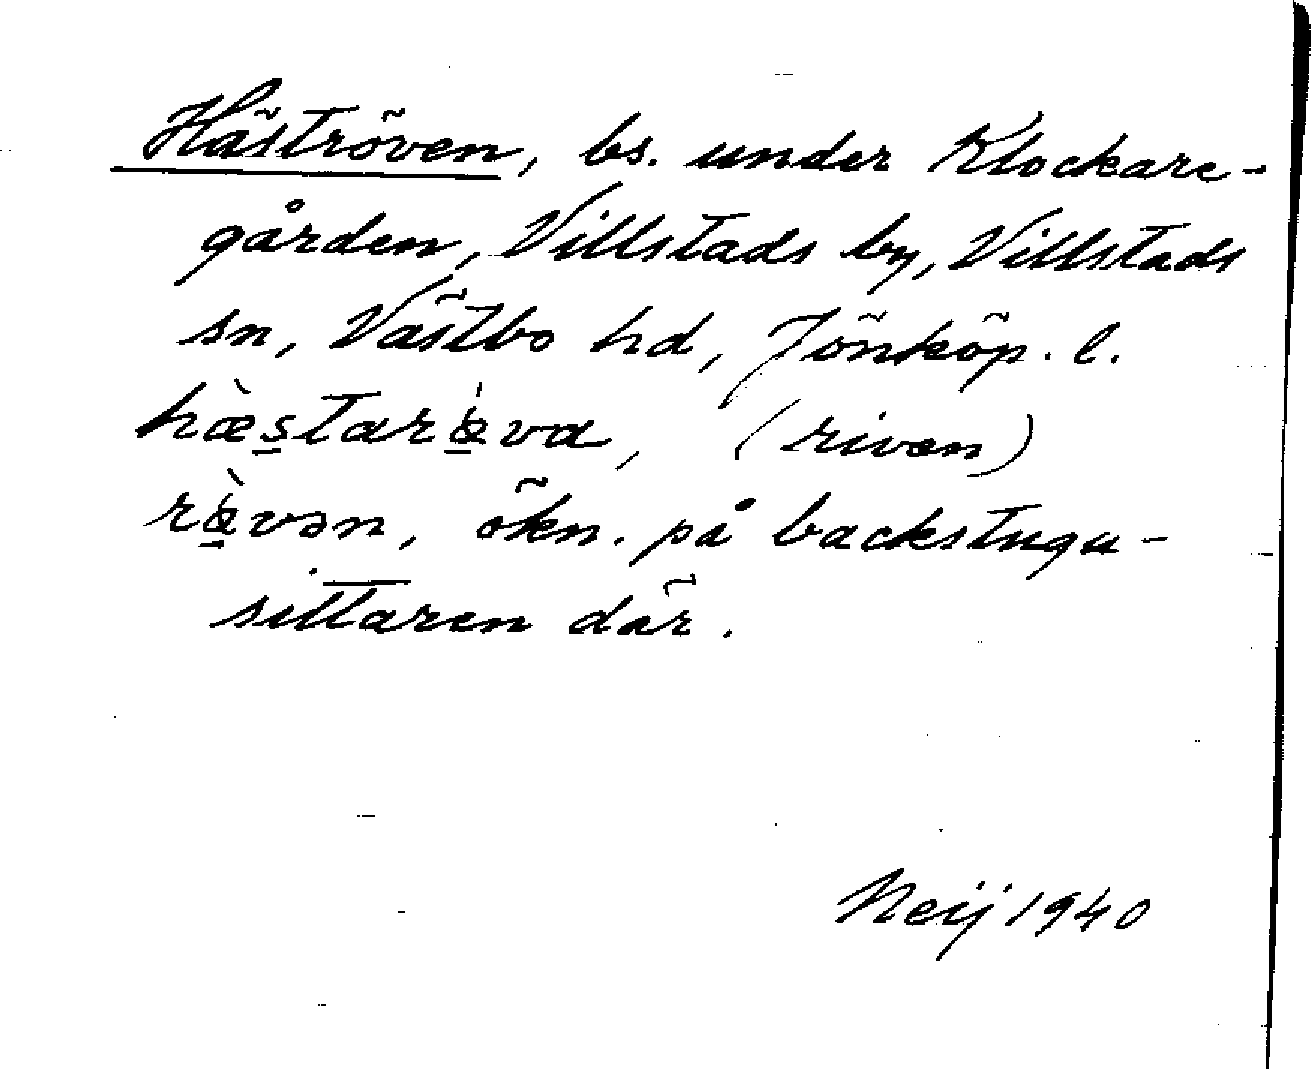 Häströven, bs. under Klockare-
gården, Villstads by, Villstads
sn, Västbo hd, Jönköp. l.
hæ̀s̠tarö̠́va, (rivən)
rö̠̀vən, ökn. på backstugu-
sittaren där.
Neij 1940